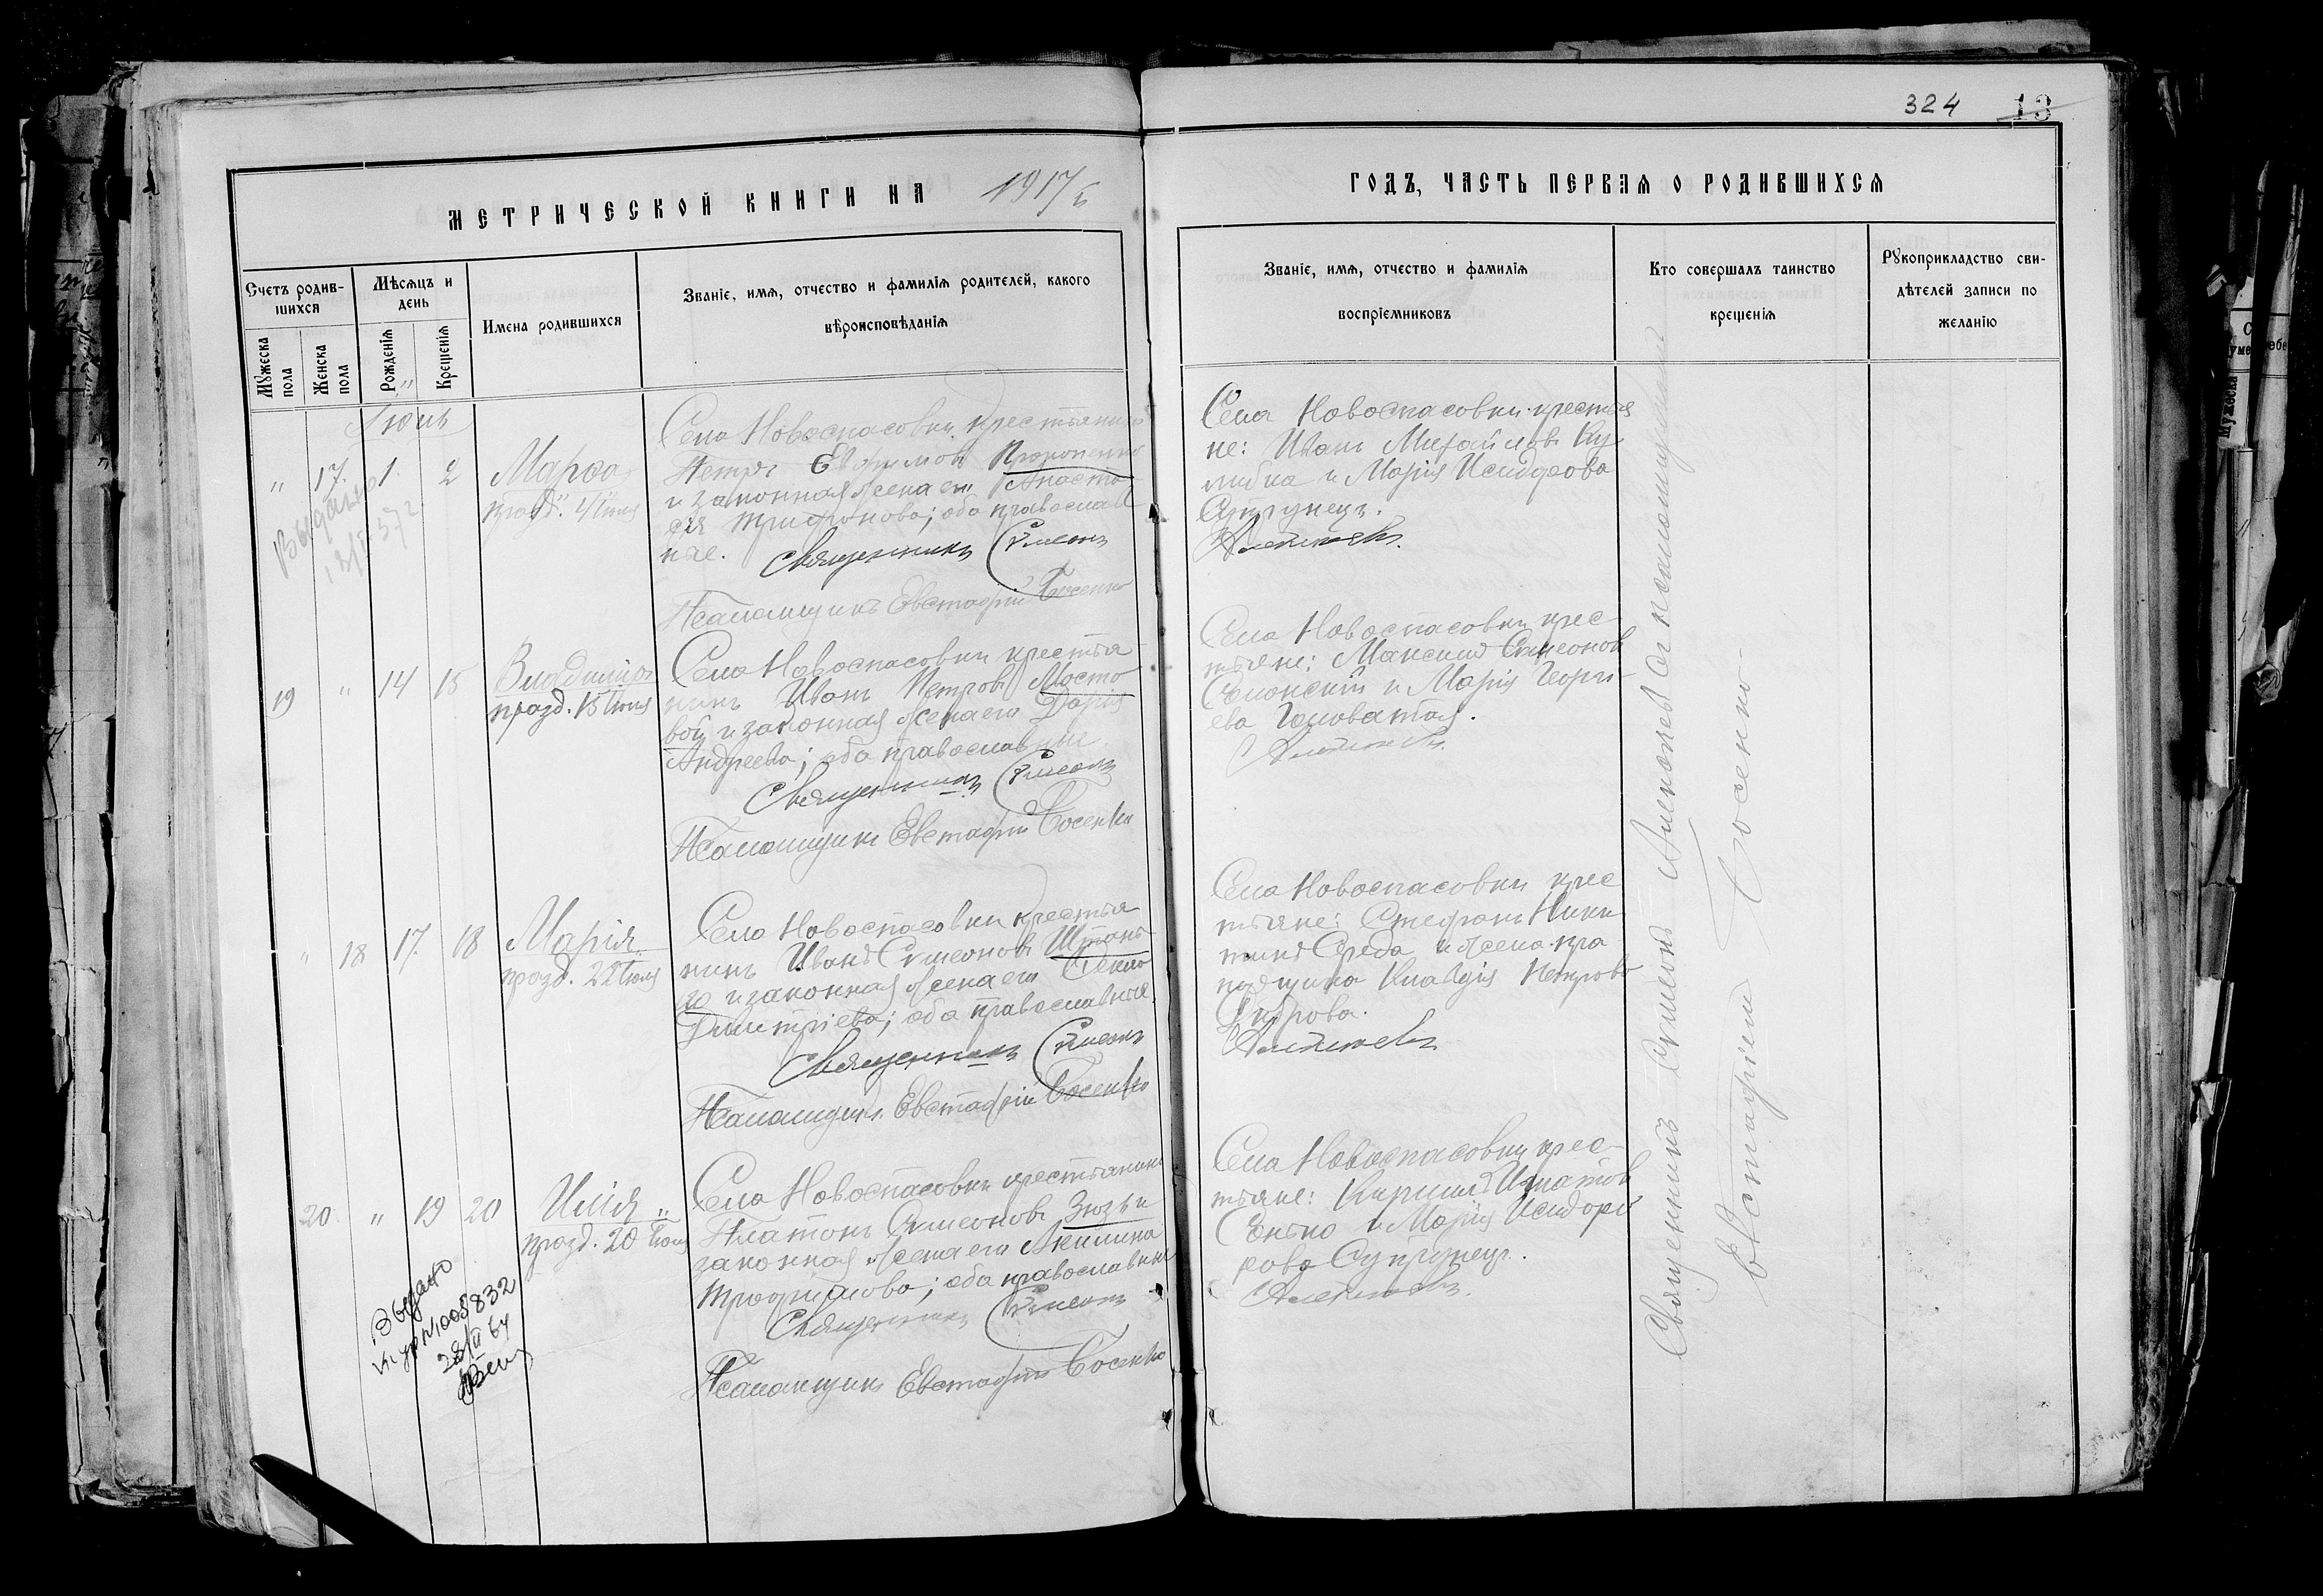 324 13
МЕТРИЧЕСКОЙ КНИГИ НА 1917
ГОДЪ, ЧАСТЬ ПЕРВАЯ О РОДИВШИХСЯ
Счетъ родив-
шихся
Мужеска пола
Женска пола
Мѣсяцъ и
день
Рожденія
Крещенія
Имена родившихся
Званіе, имя, отчество и фамилія родителей, какого
вѣроисповѣданія
Званіе, имя, отчество и фамилія
воспріемниковъ
Кто совершалъ таинство
крещенія
Рукоприкладство сви-
дѣтелей записи по
желанію
" 17. 1. 2
Марѳа
празд. 4 Іюля
Выдано
Села Новоспасовки крестьянинъ
Петръ Евфимовъ
и законная жена его Анаста
сія Трифонова; оба православ
ные. Священникъ Симеонъ
Псаломщикъ Евстафій Босенко
Села Новоспасовки крестья
не: Иванъ Михайловъ Ку
либка и Марія Исидорова
Супрунецъ.
19 " 14 15
Владиміръ
празд. 15 Іюля
Села Новоспасовки крестья
нинъ Иванъ Петровъ Мосто
вой и законная жена его Дарія
Андреева; оба православные
Священникъ Симеонъ
Псаломщикъ Евстафій Босенко
Села Новоспасовки крес-
тьяне: Максимъ Симеоновъ
и Марія Георгі-
ева Головатая.
" 18 17. 18
Марія
празд. 22 Іюля
Села Новоспасовки крестья
нинъ Иванъ Симеоновъ Штань
ко и законная жена его Ѳекла
Димитріева; оба православные.
Священникъ Симеонъ
Псаломщикъ Евстафій Босенко
Села Новоспасовки крес
тьяне: Стефанъ Ники
тинъ Среда и жена пра
порщика Клавдія Петрова
20 " 19 20
Илія "
празд. 20 Іюля
Выдано
1005832
28/II 64
Села Новоспасовки крестьянинъ
Платонъ Симеоновъ Зюзь и
законная жена его Акилина
Трофимова; оба православные
Священникъ Симеонъ
Псаломщикъ Евстафій Босенко
Села Новоспасовки крес-
тьяне: Кириллъ Игнатовъ
Сенько и Марія Исидоро
рова Супрунецъ.
Священникъ Симеонъ съ псаломщикомъ
Евстафіемъ Босенко.